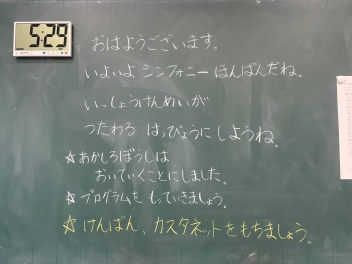 5:29
おはようございます。
いよいよ シンフォニー ほんばんだね。
いっしょうけんめいが
つたわる はっぴょうに しようね。
☆あかしろぼうしは
おいていくことにしました。
☆プログラムを もっていきましょう。
☆けんばん、カスタネットをもちましょう。